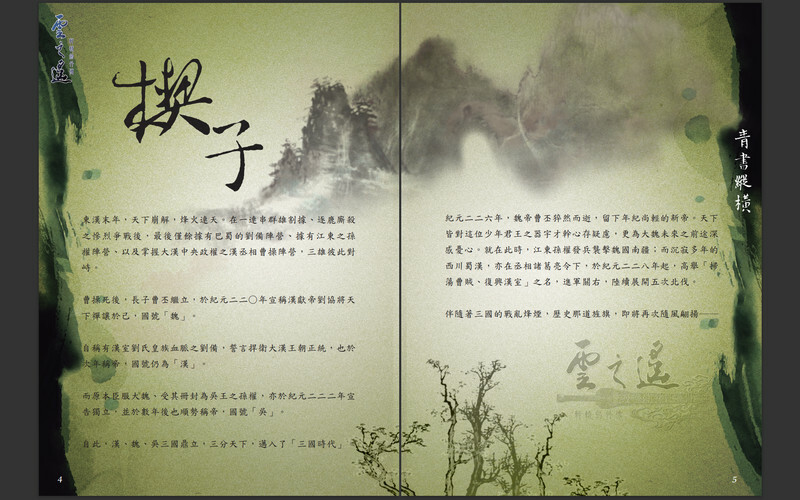 雲之遙
楔子
東漢末年，天下崩解，烽火連天。在一連串群雄割據、逐鹿廝殺
之慘烈爭戰後，最後僅餘據有巴蜀的劉備陣營、據有江東之孫
權陣營、以及掌握大漢中央政權之漢丞相曹操陣營，三雄彼此對
峙。
曹操死後，長子曹丕繼立，於紀元二二〇年宣稱漢獻帝劉協將天
下禪讓於己，國號「魏」。
自稱有漢室劉氏皇族血脈之劉備，誓言捍衛大漢王朝正統，也於
次年稱帝，國號仍為「漢」。
而原本臣服大魏、受其冊封為吳王之孫權，亦於紀元二二二年宣
告獨立，並於數年後也順勢稱帝，國號「吳」。
自此，漢、魏、吳三國鼎立，三分天下，邁入了「三國時代」
4
青書縱橫
紀元二二六年，魏帝曹丕猝然而逝，留下年紀尚輕的新帝。天下
皆對這位少年君王之器宇才幹心存疑慮，更為大魏未來之前途深
感憂心。就在此時，江東孫權發兵襲擊魏國南疆；而沉寂多年的
西川蜀漢，亦在丞相諸葛亮令下，於紀元二二八年起，高舉「掃
蕩曹賊、復興漢室」之名，進軍關右，陸續展開五次北伐。
伴隨著三國的戰亂烽煙，歷史那道旌旗，即將再次隨風翩揚──
雲之遙
5